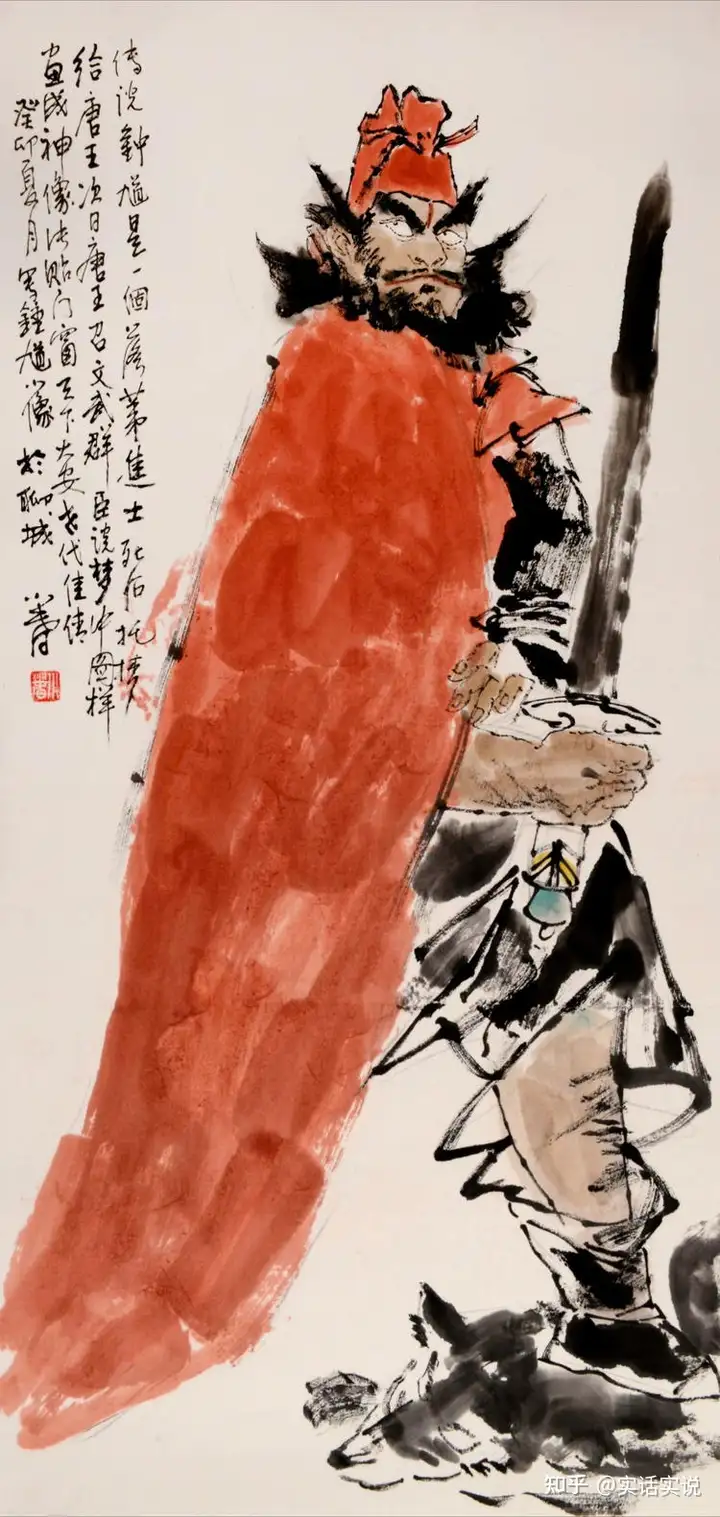 传说钟馗是一個落第進士死后托梦
给唐王次日唐王召文武群臣说梦中图样
画成神像张贴门窗天下大安世代佳传
癸卯夏月写鍾馗像於聊城
知乎 @实话实说